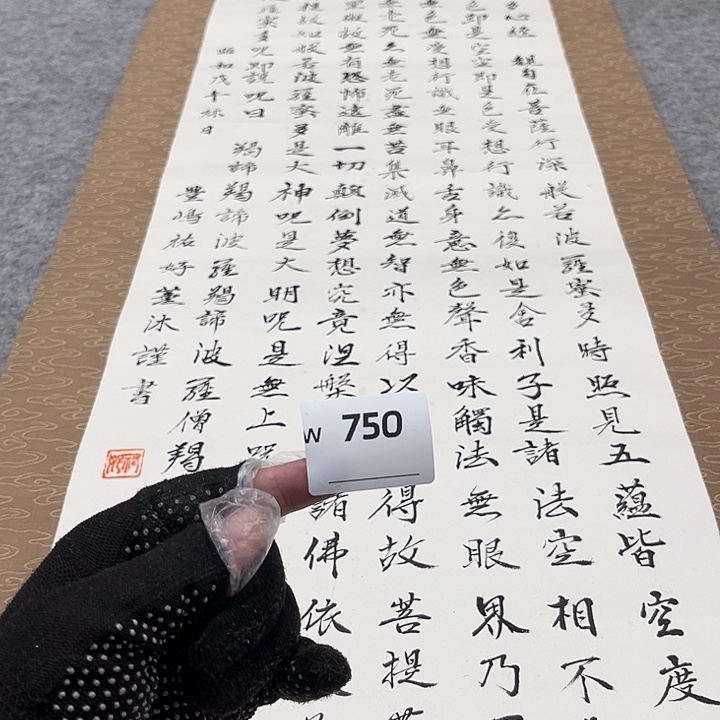 心経
観自在菩薩行深般若波羅蜜多時照見五蘊皆空度
色即是空空即是色受想行識亦復如是舎利子是諸法空相不
色無受想行識無眼耳鼻舌身意無色聲香味觸法無眼界乃
無老死亦無老死盡無苦集滅道無智亦無得以
得故菩提
罣礙故無有恐怖遠離一切顛倒夢想究竟涅槃
諸佛依
故知般若波羅蜜多是大神呪是大明呪是無上呪
羅蜜多呪即説呪曰
羯諦羯諦波羅羯諦波羅僧羯
昭和戊午秋日
豊嶋祐好薫沐謹書
W 750